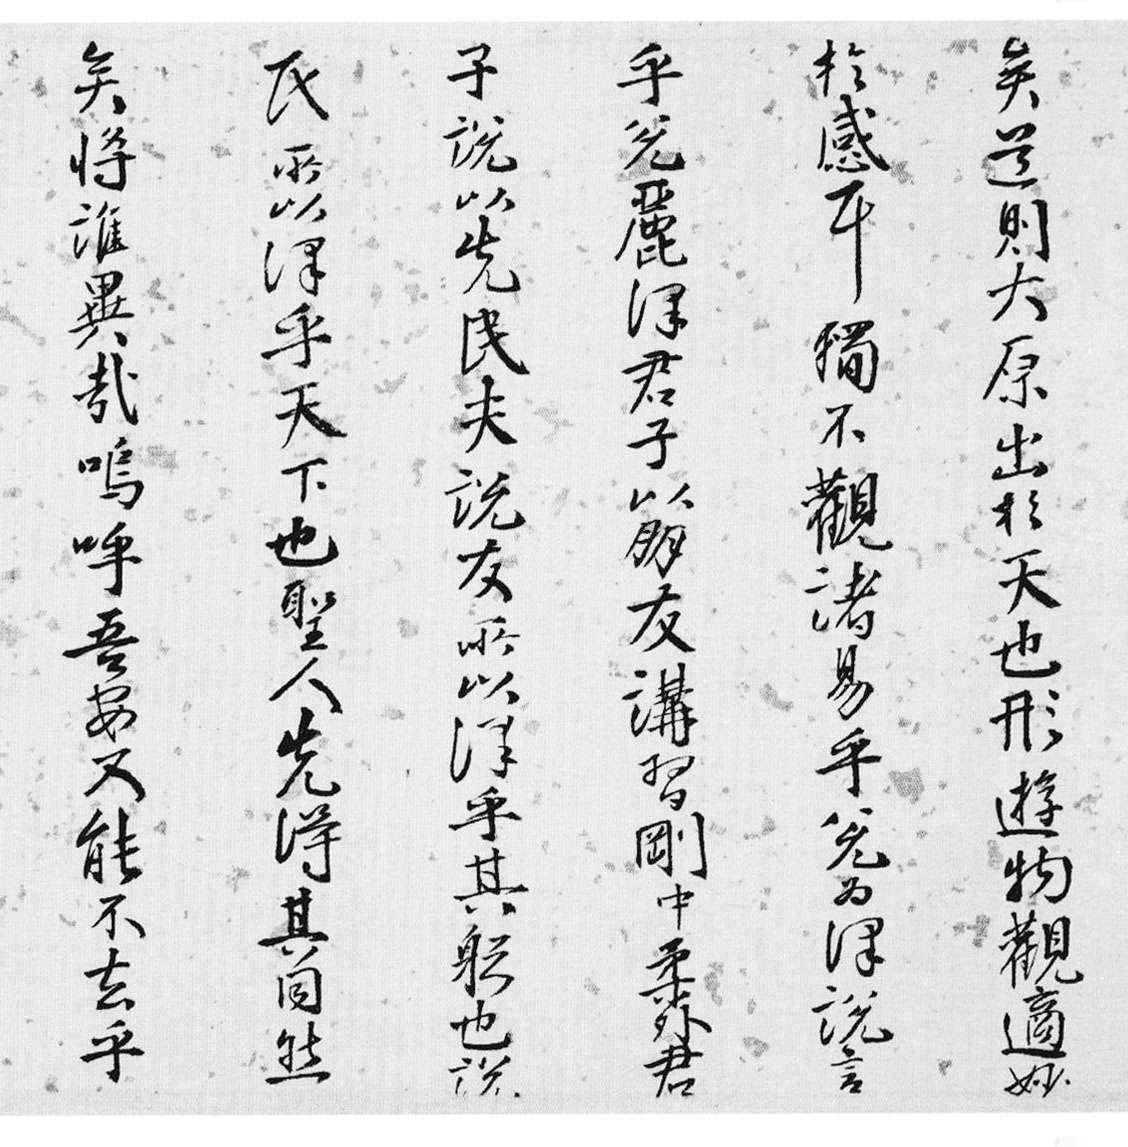 矣道則大原出於天也形遊物觀適妙
於感耳獨不觀諸易乎兌為澤說言
乎兌麗澤君子以朋友講習剛中柔外君
子說以先民夫說友所以澤乎其躬也說
民所以澤乎天下也聖人先得其同然
矣將誰異哉嗚呼吾安又能不去乎